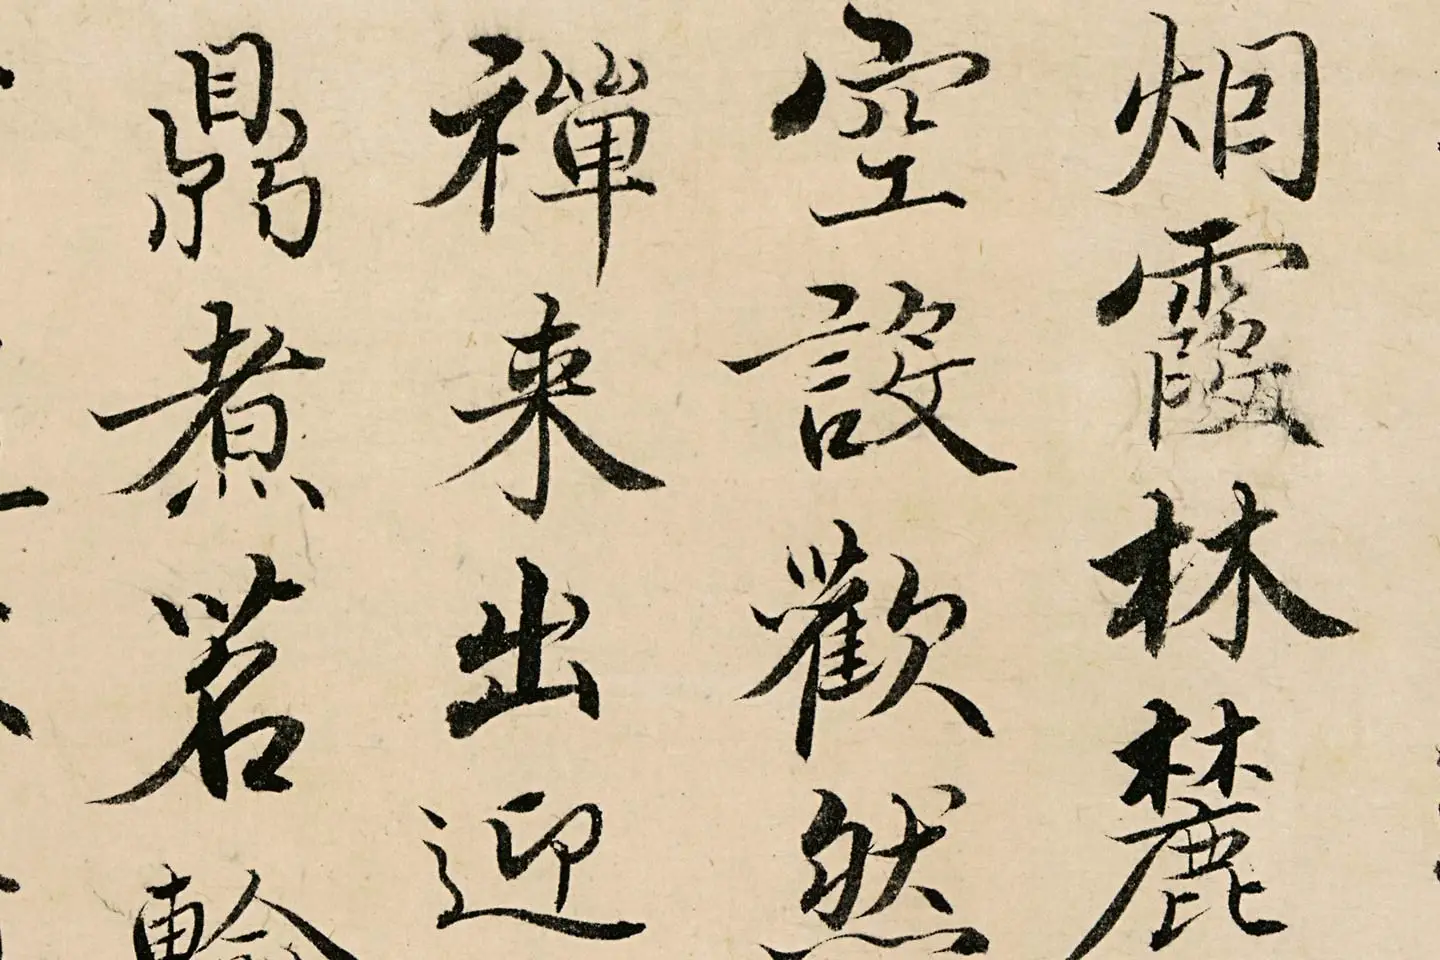 烟霞林麓
空設歡然
禪来出迎
鼎煮茗輪